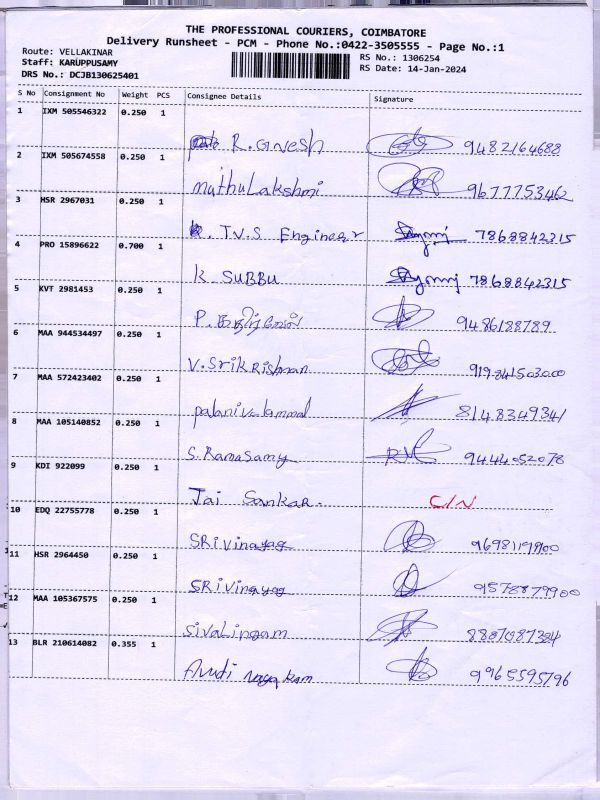 THE PROFESSIONAL COURIERS, COIMBATORE
Delivery Runsheet - PCM - Phone No.:0422-3505555 - Page No.:1
Route: VELLAKINAR RS No.: 1306254
Staff: KARUPPUSAMY RS Date: 14-Jan-2024
DRS No.: DCJB130625401
S No Consignment No Weight PCS Consignee Details Signature
1 IXM 505546322 0.250 1
R. Gnesh 9482164688
2 IXM 505674558 0.250 1
muthuLakshmi 9677753462
3 HSR 2967031 0.250 1
T.V.S Engineer 7868842315
4 PRO 15896622 0.700 1
K SUBBU 7868842315
5 KVT 2981453 0.250 1
P. கதிர்வேல் 9486188789
6 MAA 944534497 0.250 1
V.Srikrishnan
7 MAA 572423402 0.250 1
palanivelammal 8148349341
8 MAA 105140852 0.250 1
S. Ramasamy 9444052078
9 KDI 922099 0.250 1
Jai Sankar. C/N
10 EDQ 22755778 0.250 1
SRi vinayag 9698119900
11 HSR 2964450 0.250 1
SRi vinayag 9578879900
12 MAA 105367575 0.250 1
SivaLingam
13 BLR 210614082 0.355 1
9965595796